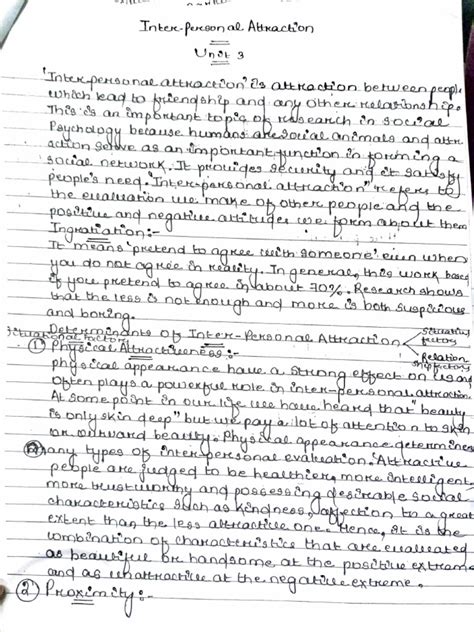 Inter-personal Attraction
Unit 3
'Inter-personal attraction' is attraction between people
which lead to friendship and any other relationship.
This is an important topic of research in social
Psychology because humans are social animals and attr-
action serve as an important function in forming a
social network. It provides security and it satisfy
people's need. "Inter-personal attraction" refers to
the evaluation we make of other people and the
positive and negative attitudes we form about them
Ingratiation:-
It means 'pretend to agree with someone' even when
you do not agree in reality. In general, this work based
if you pretend to agree in about 70%. Research shows
that the less is not enough and more is both suspicious
and boring.
Determinants of Inter-Personal Attraction
Situational
factors
Relation
ship factors
Situational factors
① Physical Attractiveness:-
physical appearance have a strong effect on us as
often plays a powerful role in inter-personal attraction.
At some point in our life we have heard that "beauty
is only skin deep" but we pay a lot of attention to skin
or outward beauty. Physical appearance determines
many types of inter-personal evaluation. Attractive
people are judged to be healthier, more intelligent,
more trustworthy and possessing desirable social
characteristics such as kindness, affection to a great
extent than the less attractive one. Hence, it is the
combination of characteristics that are evaluated
as beautiful or handsome at the positive extreme
and as unattractive at the negative extreme.
② Proximity:-